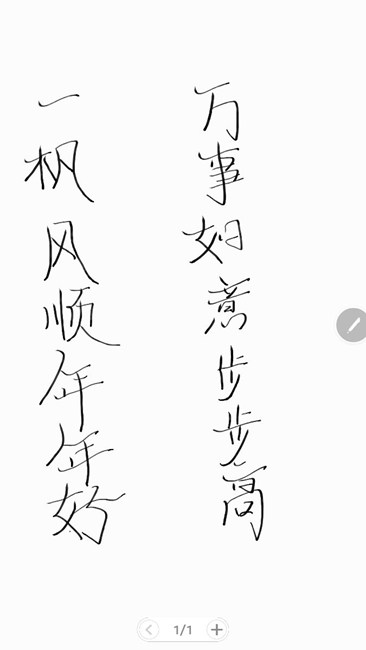 一枫风顺年年好
万事如意步步高
1/1